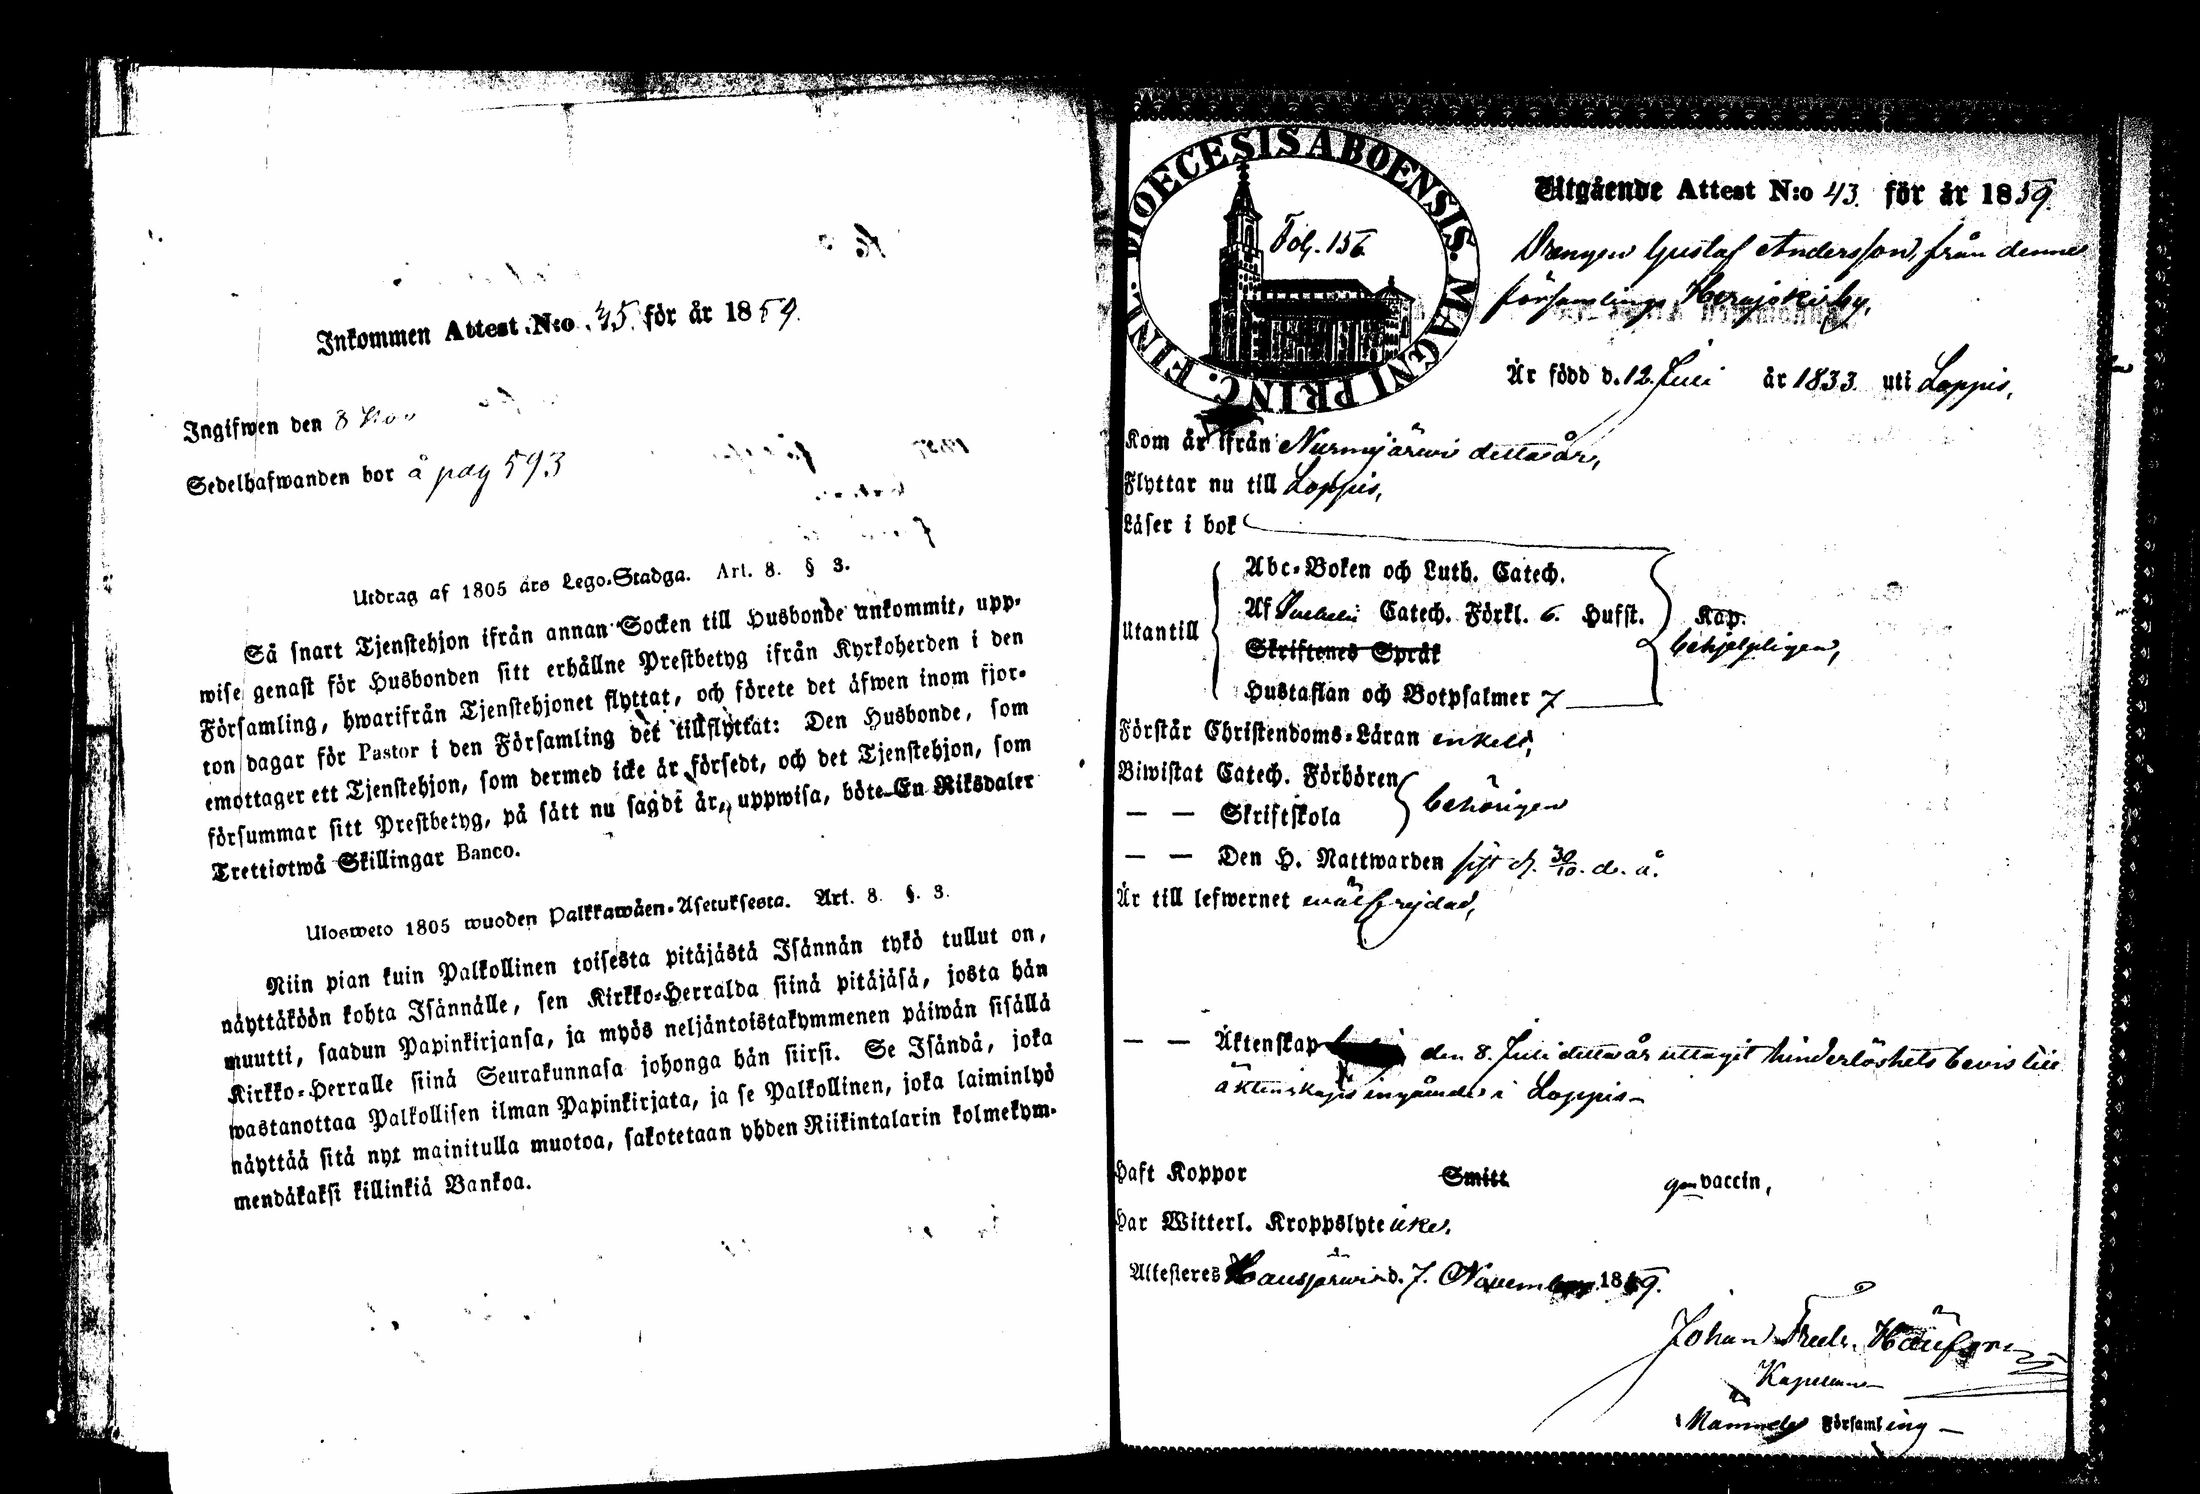 Inkommen Attest N:o 45 för år 1859.
Ingifwen den 8 Nov
Sedelhafwanden bor å pag 593
Utdrag af 1805 års Lego-Stadga. Art. 8. § 3.
Så snart Tjenstehjon ifrån annan Socken till Husbonde ankommit, upp-
wise genast för Husbonden sitt erhållne Prestbetyg ifrån Kyrkoherden i den
Församling, hwarifrån Tjenstehjonet flyttat, och förete det äfwen inom fjor-
ton dagar för Pastor i den Församling det tillflyttat: Den Husbonde, som
emottager ett Tjenstehjon, som dermed icke är försedt, och det Tjenstehjon, som
försummar sitt Prestbetyg, på sätt nu sagdt är, uppwisa, böte En Riksdaler
Trettiotwå Skillingar Banco.
Ulosweto 1805 wuoden Palkkawäen-Asetuksesta. Art. 8. §. 3.
Niin pian kuin Palkollinen toisesta pitäjästä Isännän tykö tullut on,
näyttäköön kohta Isännälle, sen Kirkko-Herralda siinä pitäjäsä, josta hän
muutti, saadun Papinkirjansa, ja myös neljäntoistakymmenen päiwän sisällä
Kirkko-Herralle siinä Seurakunnasa johonga hän siirsi. Se Isändä, joka
wastanottaa Palkollisen ilman Papinkirjata, ja se Palkollinen, joka laiminlyö
näyttää sitä nyt mainitulla muotoa, sakotetaan yhden Riikintalarin kolmekym-
mendäkaksi killinkiä Bankoa.
DIOECESIS ABOENSIS. MAGNI PRINC. FINL.
Fol. 156
Utgående Attest N:o 43. för år 1859.
Drängen Gustaf Andersson, från denne
församlings Herajoki by,
Är född d. 12. Juli år 1833. uti Loppis,
Kom år ifrån Nurmijärwi detta år,
Flyttar nu till Loppis,
Läser i bok
Abc-Boken och Luth. Catech.
Af Svebelii Catech. Förkl. 6. Hufst. Kap.
Utantill
behjelpligen,
Skriftenes Språk
Hustaflan och Botpsalmer 7
Förstår Christendoms-Läran enkelt,
Biwistat Catech. Förhören
behörigen
— — Skriftskola
— — Den H. Nattwarden sist d. 30/10. d. å.
Är till lefwernet wälfrejdad,
— — Äktenskap den 8. Juli detta år uttagit hinderlöshets bevis till
äktenskaps ingående i Loppis
Haft Koppor Smitt gm vaccin,
Har Witterl. Kroppslyte icke.
Attesteras Hausjärwi d. 7. November 1859.
Johan Fredr.
Kapellan
Församling